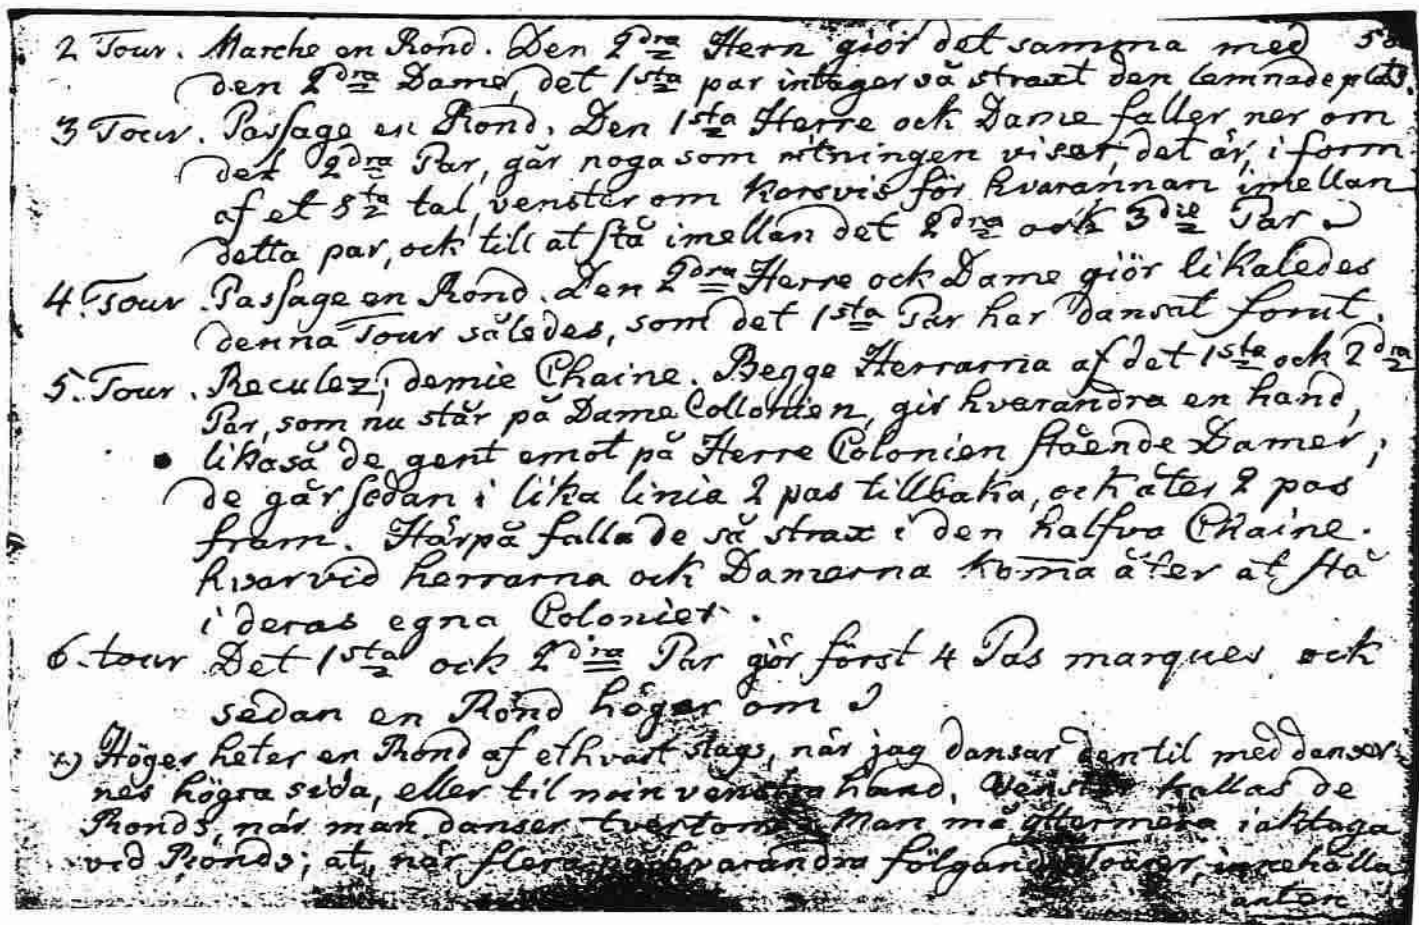 2 Tour. Marche en Rond. Den 2dra Hern giör det samma med
den 2dra Dame, det 1sta par intager så straxt den lemnade plats.
3 Tour. Passage en Rond. Den 1sta Herre ock Dame faller ner om
det 2dra Par, går noga som ritningen viser, det är, i form
af et 8ta tal, venster om korsvis för hvarannan imellan
detta par, ock till at stå imellan det 2dra ock 3die Par
4. Tour. Passage en Rond. den 2dra Herre ock Dame giör likaledes
denna Tour således, som det 1sta Par har dansat forut.
5. Tour. Reculez; demie Chaine. Begge Herrarna af det 1sta ock 2dra
Par, som nu står på Dame Collonien, gir hvarandra en hand,
likaså de gent emot på Herre Colonien stående Damer;
de går sedan i lika linia 2 pas tillbaka, ock åter 2 pas
fram. Härpå falla de så strax i den halfva Chaine.
hvarvid herrarna ock Damerna kom̄a åter at stå
i deras egna Colonier.
6. tour Det 1sta ock 2dra Par giör först 4 Pas marques ock
sedan en Rond höger om
Höger heter en Rond af ethvart slags, när jag dansar den til med danser-
nes högra sida, eller til min venstra hand. Venster kallas de
Ronds, når man danser tvertom. Man må yttermera iakttaga
vid Ronds; at, når flera på hvarandra fölgande Tourer, innehålla
anten